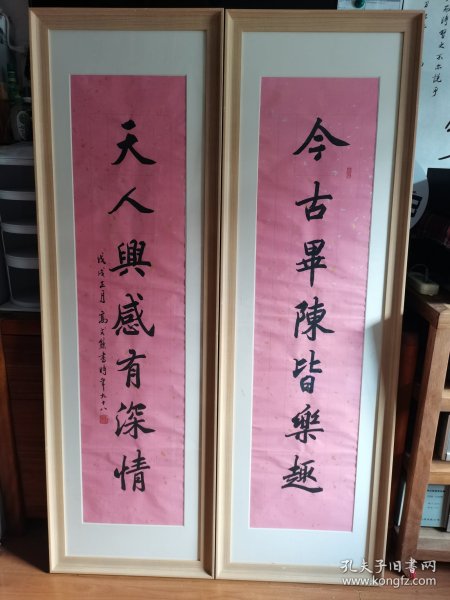 今古畢陳皆樂趣
天人興感有深情
戊戌正月 高公懿書時年九十八
孔夫子旧书网
www.kongfz.com